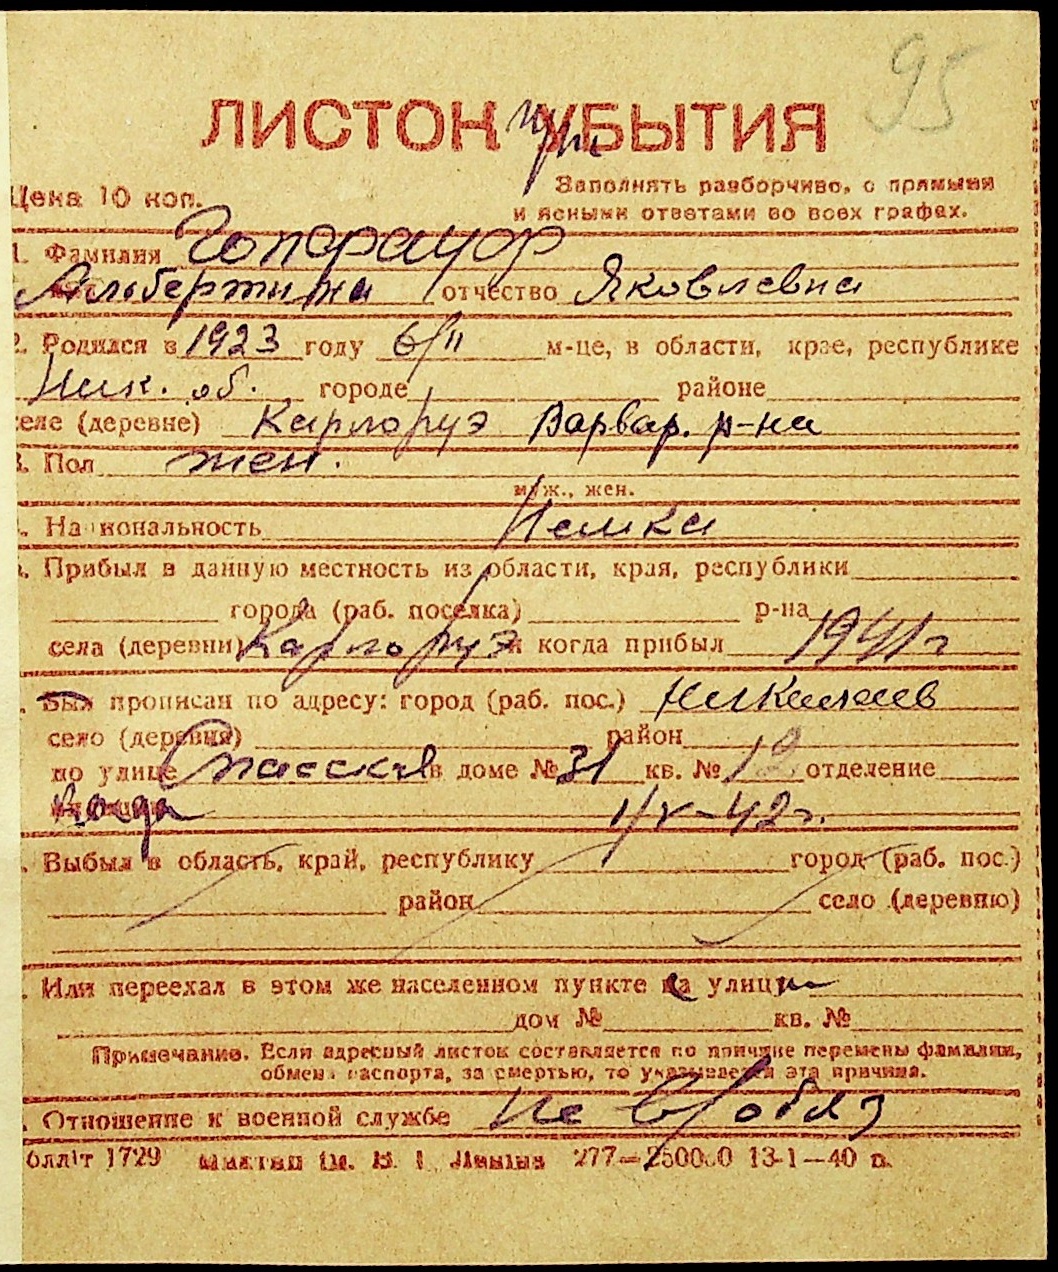 95
ЛИСТОК при УБЫТИЯ
Цена 10 коп.
Заполнять разборчиво, с прямыми
и ясными ответами во всех графах.
1. Фамилия
Альбертина отчество Яковлевна
2. Родился в 1923 году 6/II м-це, в области, крае, республике
Ник. об. городе районе
селе (деревне) Карлсруэ Варвар. р-на
3. Пол жен.
муж., жен.
Национальность Немка
Прибыл в данную местность из области, края, республики
города (раб. поселка) р-на
села (деревни) Карлсруэ и когда прибыл 1941 г
Был прописан по адресу: город (раб. пос.) Николаев
село (деревня) район
по улице Спасской в доме № 31 кв. № 12 отделение
Когда 1/V-42 г.
Выбыл в область, край, республику город (раб. пос.)
район село (деревню)
Или переехал в этом же населенном пункте с улицы
дом № кв. №
Примечание. Если адресный листок составляется по причине перемены фамилии,
обмена паспорта, за смертью, то указывается эта причина.
Отношение к военной службе не в/обяз
1729 им. В. И. Ленина 277—250000 13-1—40 г.